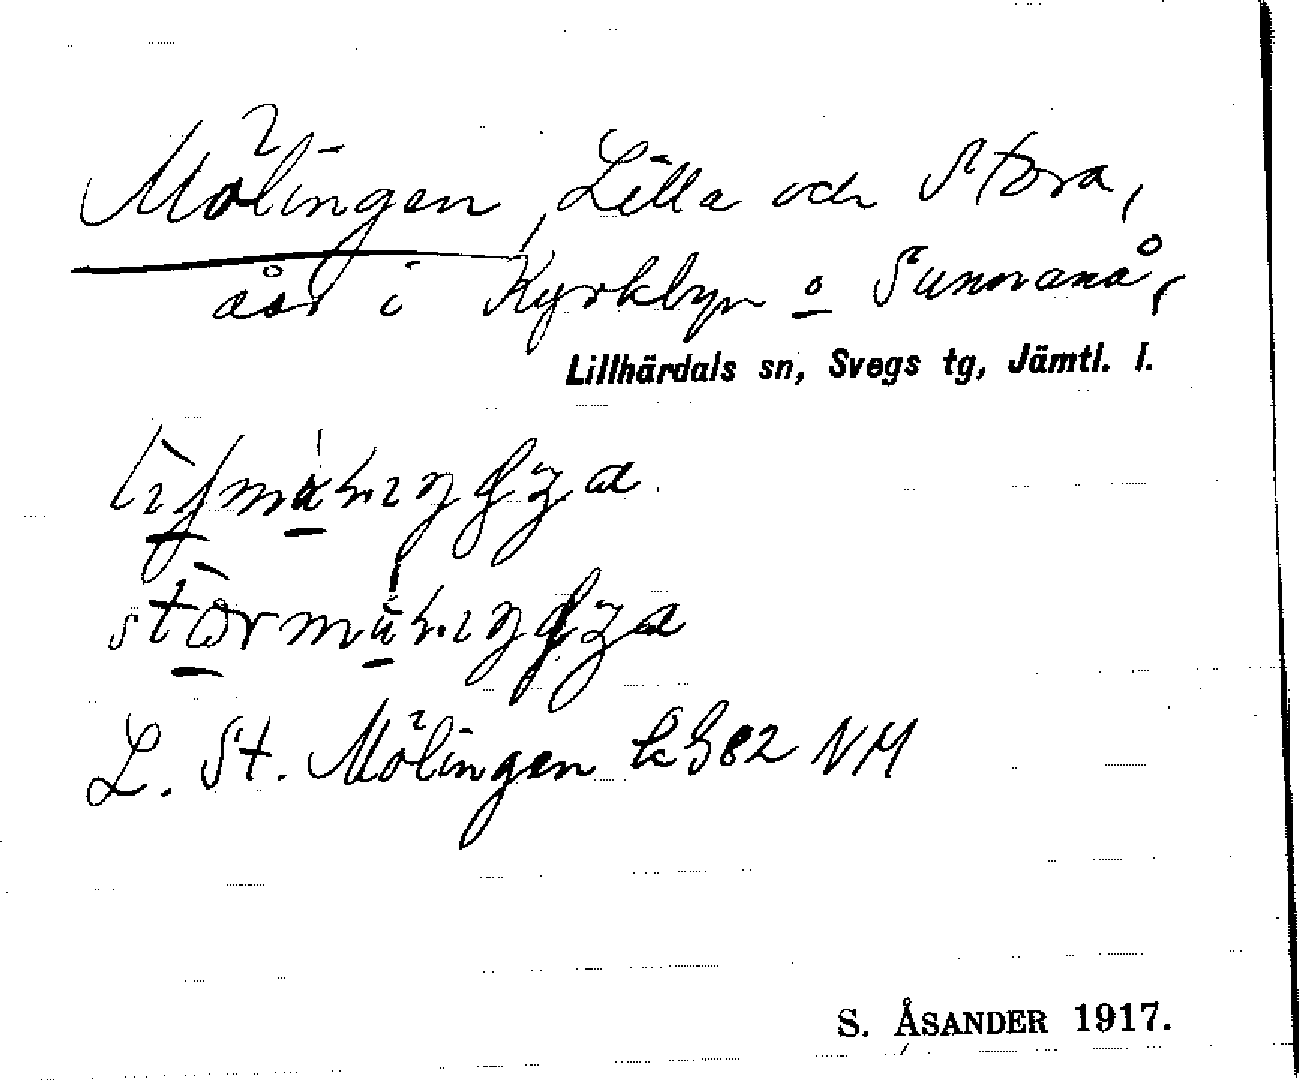 Mölingen, Lilla och Stora,
åar i Kyrkbyn o Sunnanå,
Lillhärdals sn, Svegs tg, Jämtl. l.
L. St. Mölingen k382 NM
S. ÅSANDER 1917.